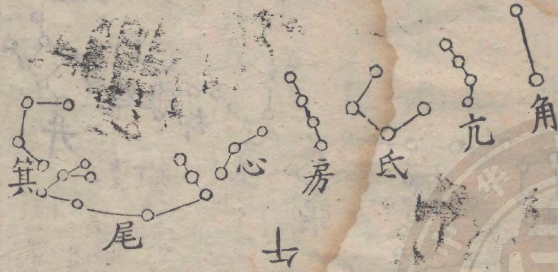 角
亢
氐
房
心
尾
箕
华